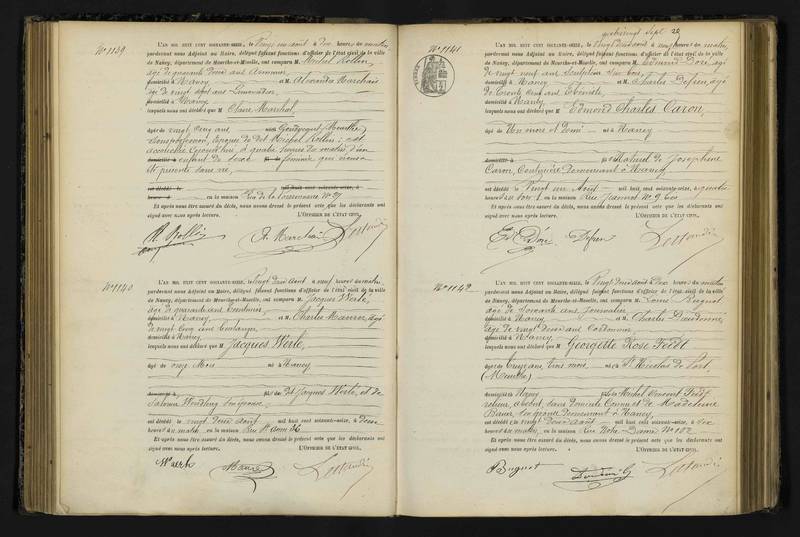 N° 1139
L'AN MIL HUIT CENT SOIXANTE-SEIZE, le Vingt un août à dix heures du matin
pardevant nous Adjoint au Maire, délégué faisant fonctions d'officier de l'état civil de la ville
de Nancy, département de Meurthe-et-Moselle, ont comparu M. Michel Rollin,
âgé de quarante deux ans
domicilié à Nancy et M. Alexandre Marchais
âgé de vingt sept ans
domicilié à Nancy
lesquels nous ont déclaré que M Claire Marchal,
âgée de vingt cinq ans née à (Meurthe)
sans profession, épouse de dit Michel Rollin; est
accouchée à quatre heures du matin, d'un
enfant de sexe féminin qui nous a
été présenté sans vie,
est décédé le mil huit cent soixante-seize, à
heures en la maison Rue de la N° 27
Et après nous être assuré du décès, nous avons dressé le présent acte que les déclarants ont
signé avec nous après lecture. L'OFFICIER DE L'ÉTAT CIVIL,
M. Rollin
A. Marchais
N° 1140
L'AN MIL HUIT CENT SOIXANTE-SEIZE, le Vingt deux août à neuf heures du matin,
pardevant nous Adjoint au Maire, délégué faisant fonctions d'officier de l'état civil de la ville
de Nancy, département de Meurthe-et-Moselle, ont comparu M. Jacques Werlé,
âgé de quarante ans
domicilié à Nancy et M. Charles âgé
de vingt cinq ans
domicilié à Nancy
lesquels nous ont déclaré que M Jacques Werlé,
âgé de onze Mois né à Nancy
fils de dit Jacques Werlé, et de
Salomé Wendling son épouse
est décédé le vingt deux août mil huit cent soixante-seize, à deux
heures du matin, en la maison Rue St 36
Et après nous être assuré du décès, nous avons dressé le présent acte que les déclarants ont
signé avec nous après lecture. L'OFFICIER DE L'ÉTAT CIVIL,
quatrevingt sept 22
N° 1141
L'AN MIL HUIT CENT SOIXANTE-SEIZE, le Vingt deux août à neuf heures du matin,
pardevant nous Adjoint au Maire, délégué faisant fonctions d'officier de l'état civil de la ville
de Nancy, département de Meurthe-et-Moselle, ont comparu M. Edouard Doré, âgé
de vingt neuf ans Sculpteur sur bois,
domicilié à Nancy et M. Charles âgé
de trente cinq ans Ebéniste,
domicilié à Nancy
lesquels nous ont déclaré que M Edmond Charles Caron,
âgé de Un mois et demi né à Nancy
fils Naturel de Joséphine
Caron, Couturière demeurant à Nancy
est décédé le Vingt un août mil huit cent soixante-seize, à quatre
heures du soir, en la maison Rue N° 9
Et après nous être assuré du décès, nous avons dressé le présent acte que les déclarants ont
signé avec nous après lecture. L'OFFICIER DE L'ÉTAT CIVIL,
Ed. Doré
N° 1142
L'AN MIL HUIT CENT SOIXANTE-SEIZE, le Vingt deux août à dix heures du matin
pardevant nous Adjoint au Maire, délégué faisant fonctions d'officier de l'état civil de la ville
de Nancy, département de Meurthe-et-Moselle, ont comparu M. Louis Buquet
âgé de soixante ans Journalier
domicilié à Nancy et M. Charles
âgé de vingt deux ans Cordonnier,
domicilié à Nancy
lesquels nous ont déclaré que M Georgette Rose
âgée de treize ans, trois mois née à St Nicolas de Port,
(Meurthe)
domiciliée à Nancy fille de Michel Vincent
absent, sans domicile connu et de Madeleine
son épouse demeurant à Nancy,
est décédée le vingt deux août mil huit cent soixante-seize, à six
heures du matin, en la maison Rue Notre-Dame N° 102
Et après nous être assuré du décès, nous avons dressé le présent acte que les déclarants ont
signé avec nous après lecture. L'OFFICIER DE L'ÉTAT CIVIL,
Buquet